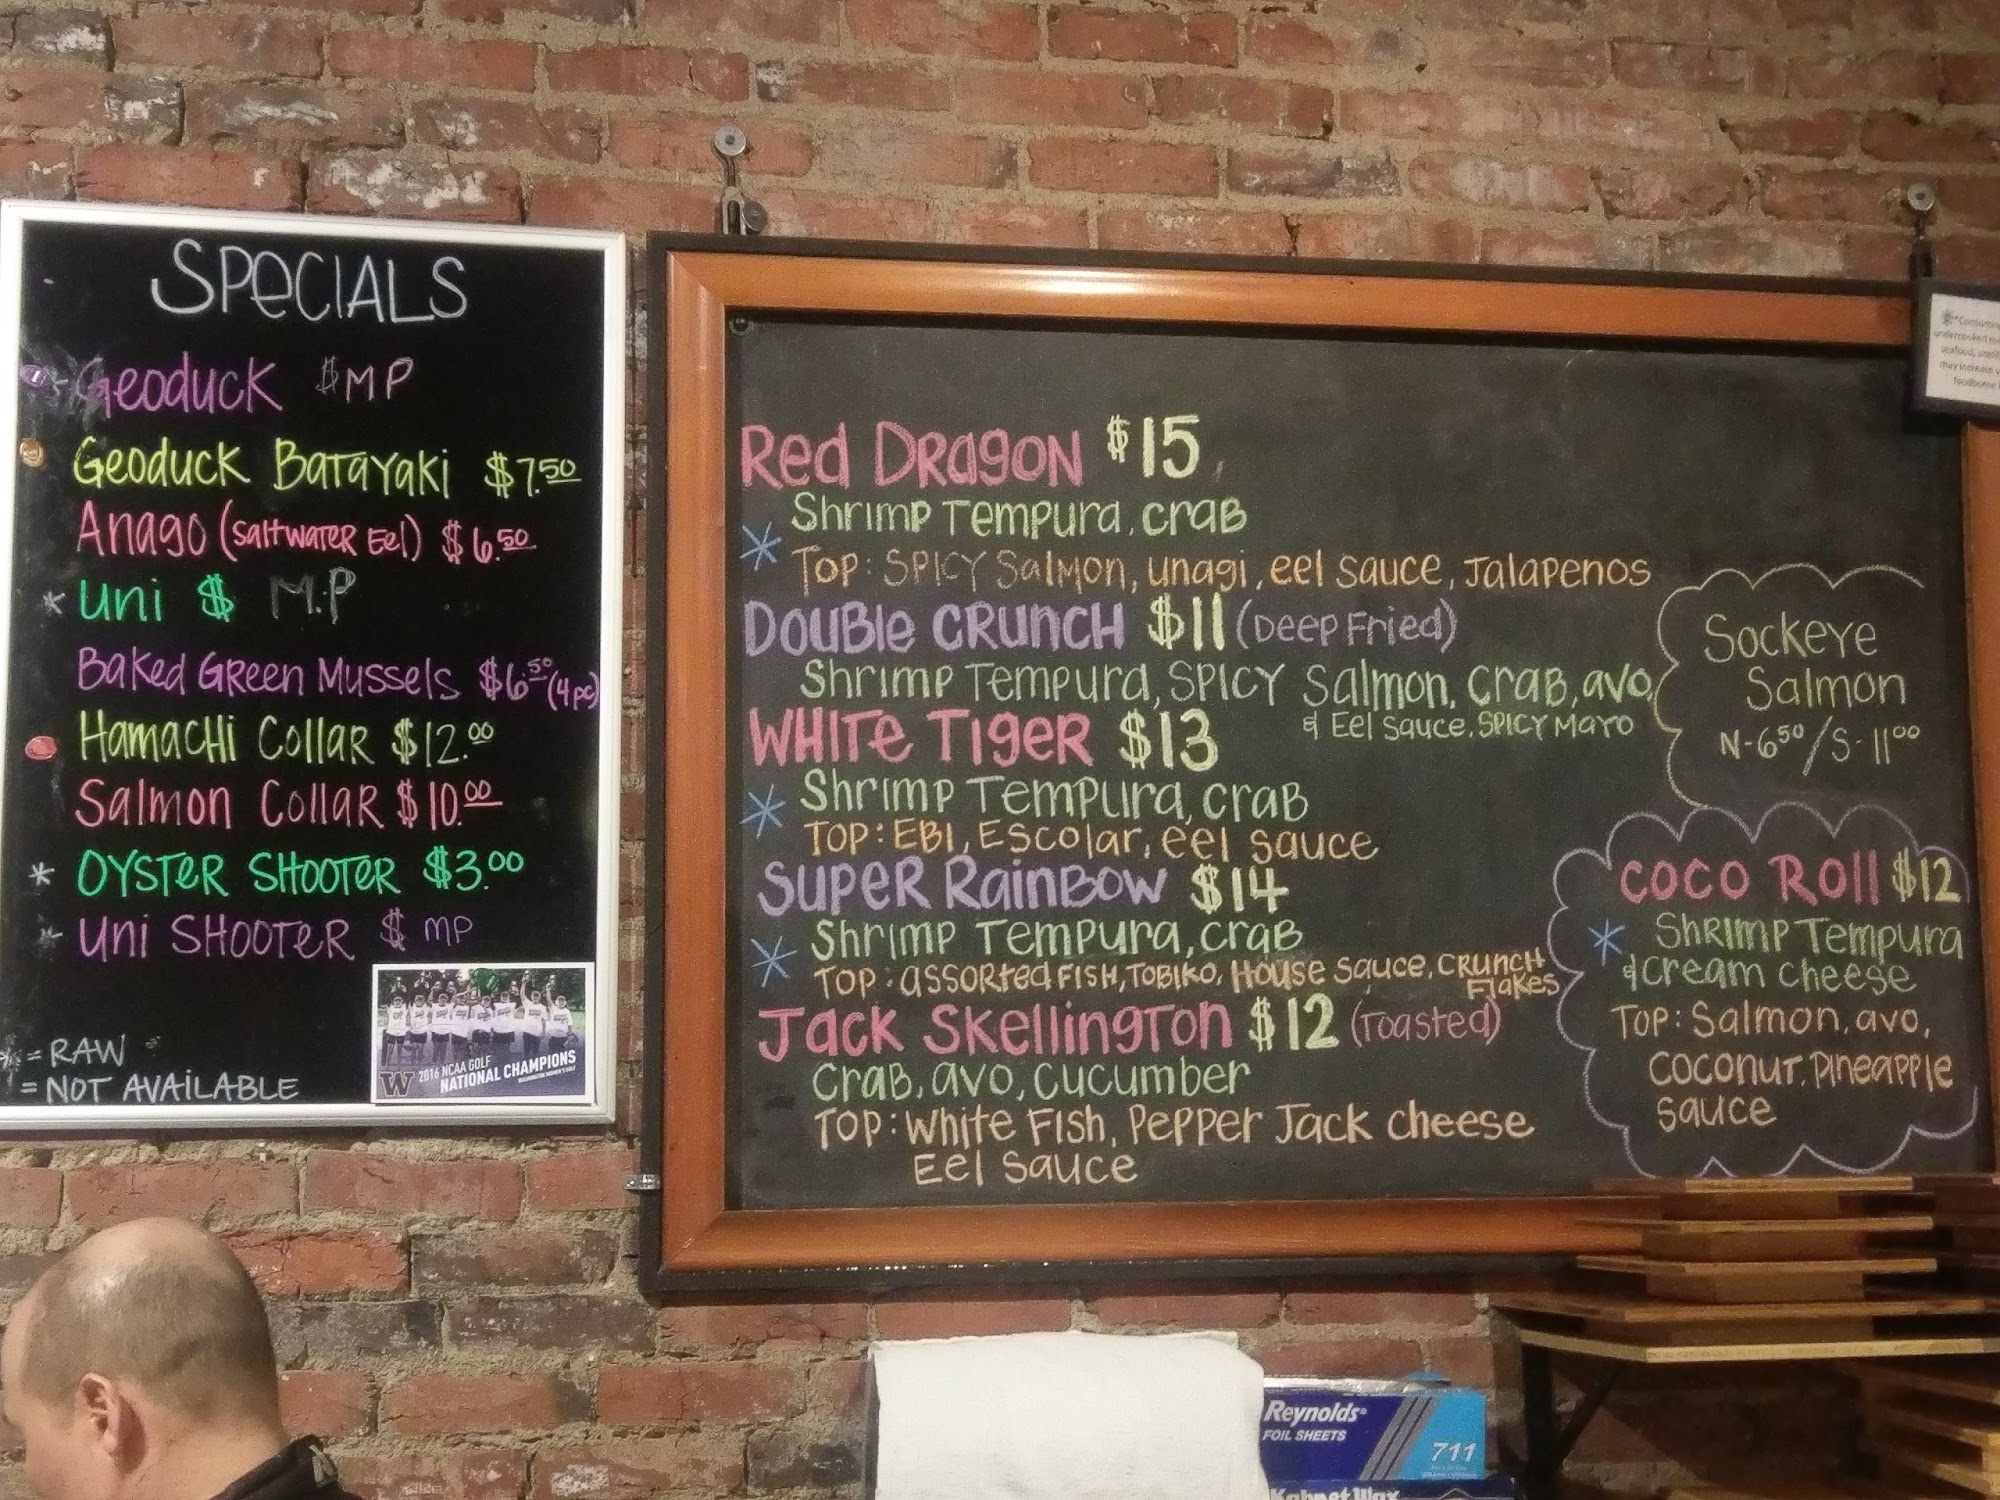 SPECIALS
* GEODUCK $MP
GEODUCK BATAYAKI $7.50
ANAGO (SALTWATER EEl) $6.50
* uni $ M.P
BAKED GREEN MUSSELS $6.50 (4pc)
HAMACHI COLLAR $12.00
SALMON COLLAR $10.00
* OYSTER SHOOTER $3.00
* uni SHOOTER $ MP
* = RAW
= NOT AVAILABLE
W 2016 NCAA GOLF
NATIONAL CHAMPIONS
WASHINGTON WOMEN'S GOLF
Red DRAGON $15
Shrimp Tempura, crab
* Top: SPICY Salmon, unagi, eel sauce, Jalapenos
DOUBLE CRUNCH $11 (Deep Fried)
Shrimp Tempura, SPICY Salmon, crab, avo
& Eel Sauce, SPICY MAYO
WHITE TIGER $13
* Shrimp Tempura, crab
TOP: EBI, Escolar, eel sauce
SUPER RAINBOW $14
Shrimp Tempura, crab
* TOP: assorted FISH, TOBIKO, House sauce, CRUNCH
Flakes
JACK SKELLINGTON $12 (Toasted)
crab, avo, cucumber
TOP: White FISH, Pepper Jack cheese
Eel Sauce
Sockeye
Salmon
N-6.50/S-11.00
COCO ROLL $12
* Shrimp Tempura
& cream cheese
TOP: Salmon, avo,
Coconut, Pineapple
sauce
*Consuming
undercooked
seafood,
may increase
foodborne
Reynolds
FOIL SHEETS
711
Kabnet Wax